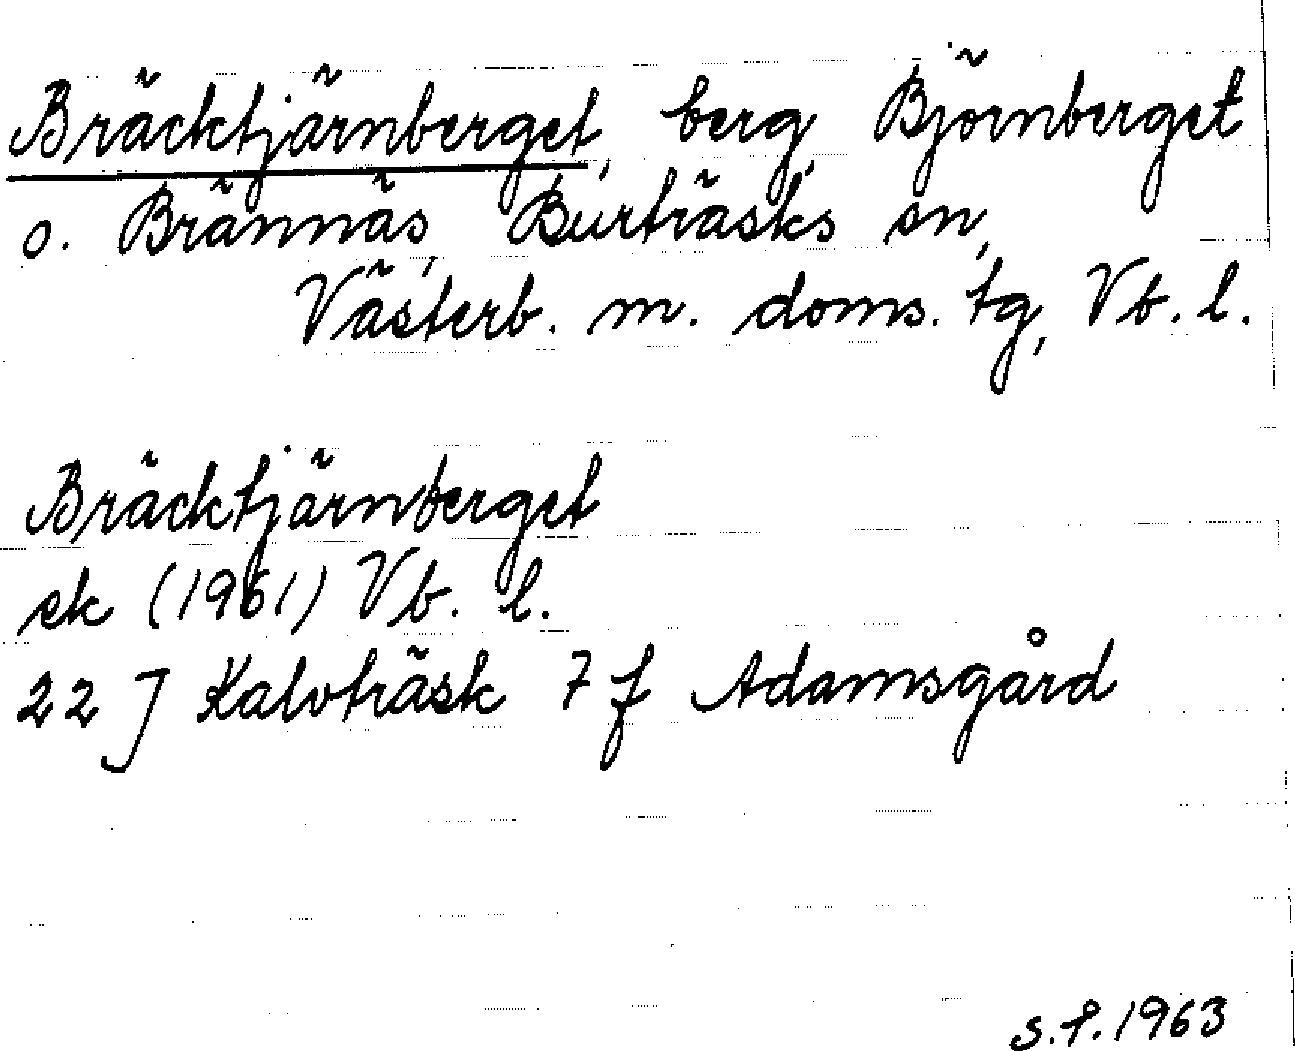 Bräcktjärnberget, berg, Björnberget
o. Brännäs, Burträsks sn,
Västerb. m. doms. tg, Vb. l.
Bräcktjärnberget
ek (1961) Vb. l.
22 J Kalvträsk 7 f Adamsgård
S.F. 1963